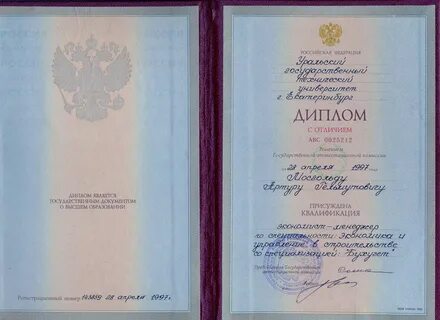 ДИПЛОМ ЯВЛЯЕТСЯ
ГОСУДАРСТВЕННЫМ ДОКУМЕНТОМ
О ВЫСШЕМ ОБРАЗОВАНИИ
Регистрационный номер 28 апреля 1997г.
РОССИЙСКАЯ ФЕДЕРАЦИЯ
Уральский
государственный
технический
университет
г. Екатеринбург
ДИПЛОМ
С ОТЛИЧИЕМ
АВС 0025212
Решением
Государственной аттестационной комиссии
28 апреля 1997 г.
Мосгольду
Артуру Гельмутовичу
ПРИСУЖДЕНА
КВАЛИФИКАЦИЯ
экономист-менеджер
по специальности "Экономика и
управление в строительстве"
со специализацией "Бухучет"
Председатель Государственной
аттестационной комиссии